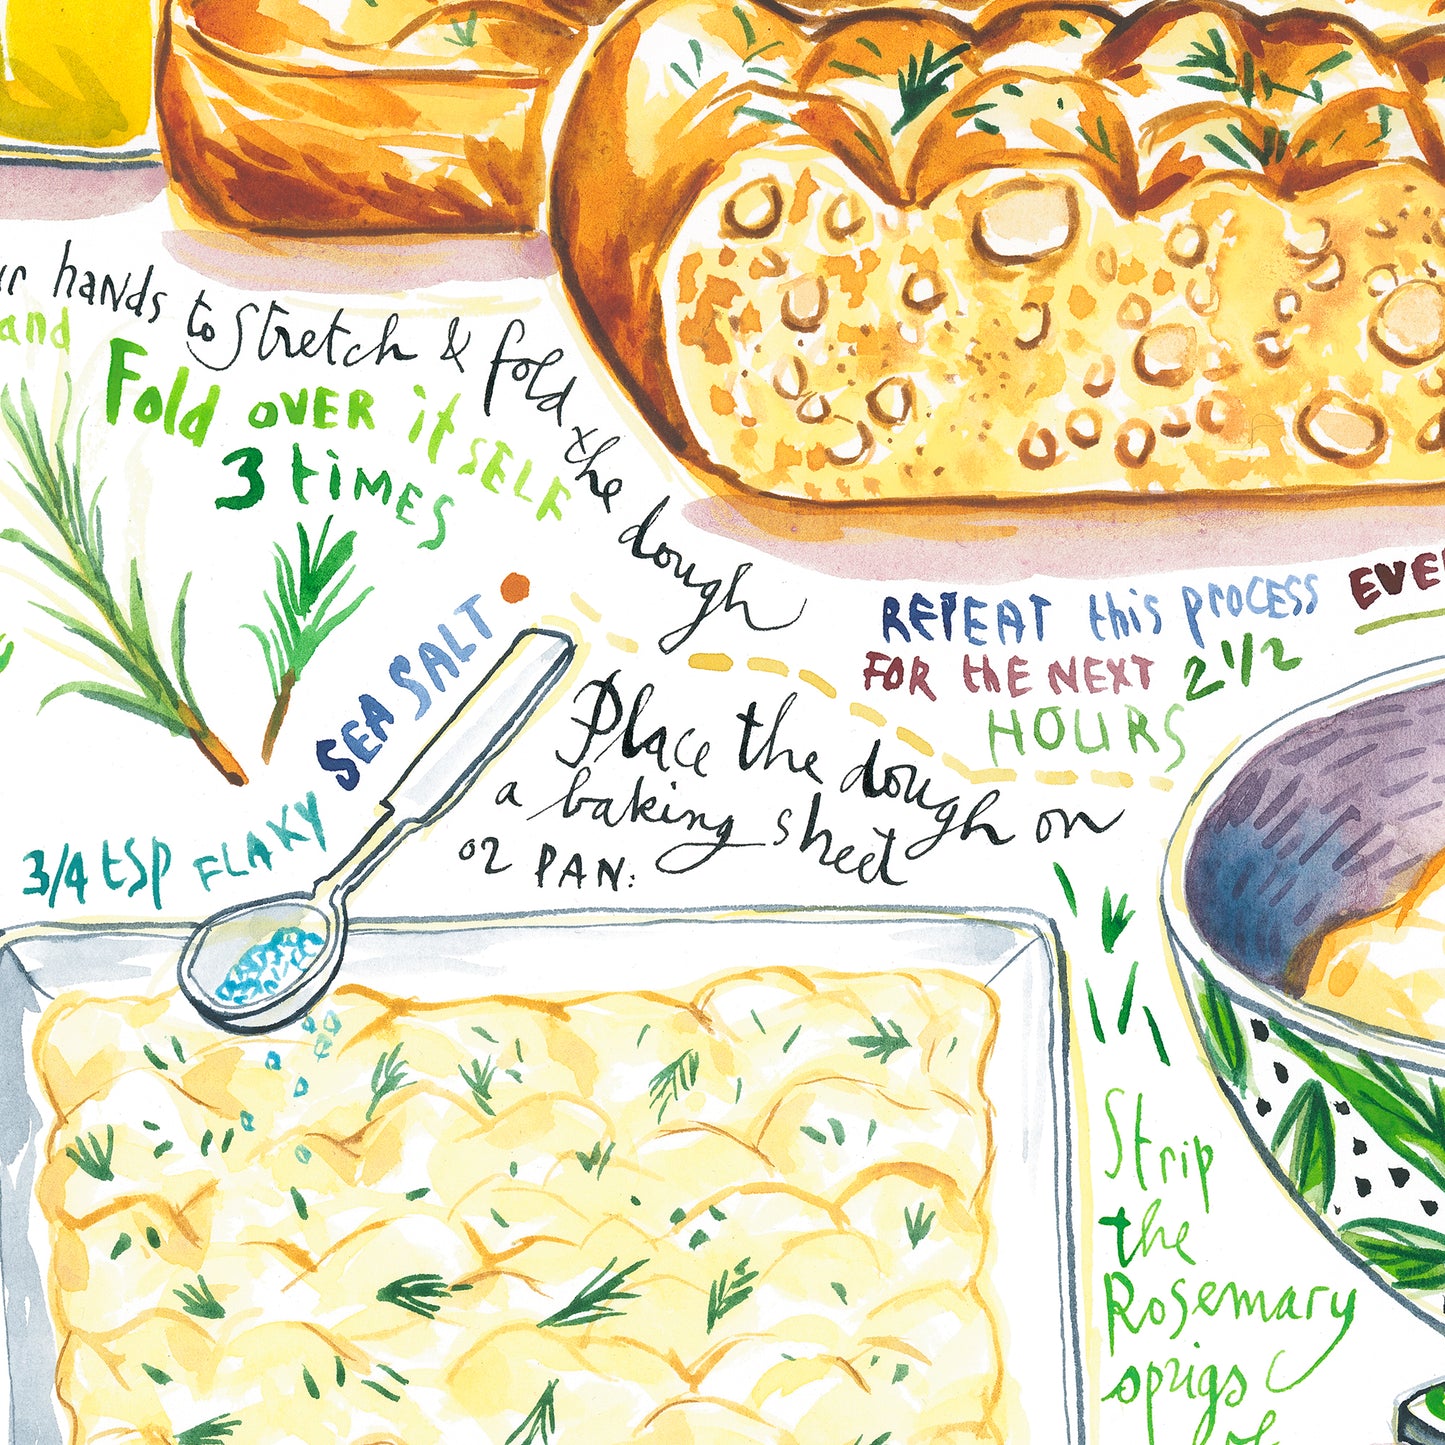 hands to stretch & fold the dough
and
Fold OVER it SELF
3 tiMES
REPEAT this PROCESS
FOR thE NEXT 2 1/2
HOURS
3/4 tsp FLAKY SEA SALT
Place the dough on
a baking sheet
or PAN:
Strip
the
Rosemary
sprigs